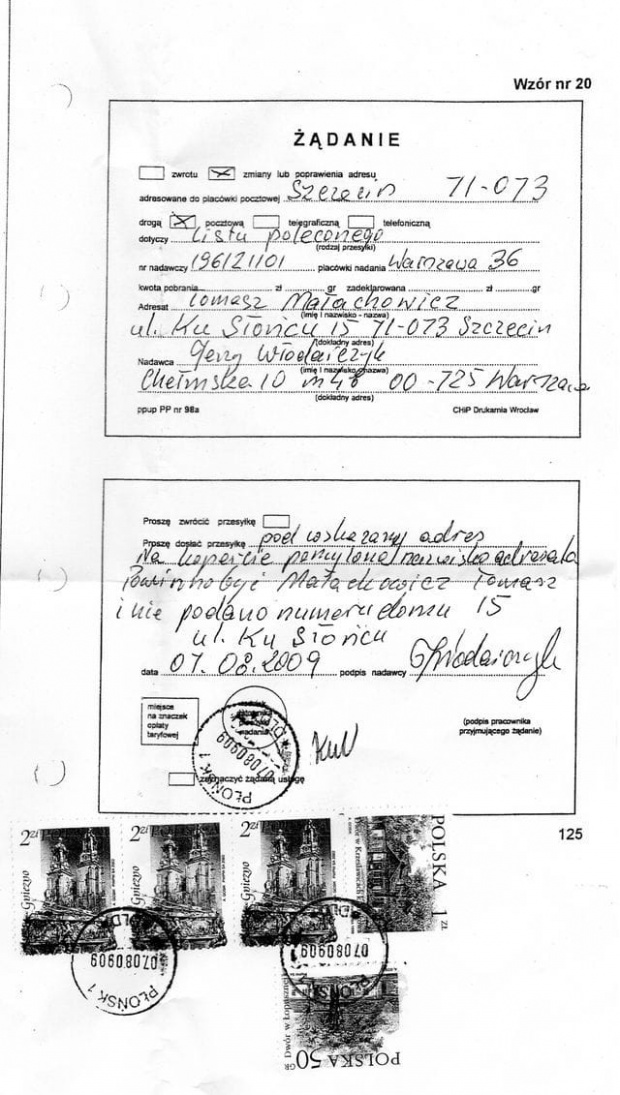 Wzór nr 20
ŻĄDANIE
zwrotu zmiany lub poprawienia adresu
adresowane do placówki pocztowej Szczecin 71-073
drogą pocztową telegraficzną telefoniczną
dotyczy Listu poleconego
(rodzaj przesyłki)
nr nadawczy 196121101 placówki nadania Warszawa 36
kwota pobrania zł gr zadeklarowana zł gr
Adresat Tomasz Małachowicz
(imię i nazwisko - nazwa)
ul. Ku Słońcu 15 71-073 Szczecin
(dokładny adres)
Nadawca Jerzy Włodarczyk
(imię i nazwisko - nazwa)
Chełmska 10 m 48 00-725 Warszawa
(dokładny adres)
ppup PP nr 98a CHiP Drukarnia Wrocław
Proszę zwrócić przesyłkę
Proszę dosłać przesyłkę pod wskazany adres
Na kopercie pomylono nazwisko adresata
Powinno być Małachowicz Tomasz
i nie podano numeru domu 15
ul. Ku Słońcu
data 07.08.2009 podpis nadawcy
miejsce
na znaczek
opłaty
taryfowej
nadania
(podpis pracownika
przyjmującego żądanie)
PŁOŃSK 1
07080909
zaznaczyć żądaną usługę
125
2zł Gniezno
2zł Gniezno
2zł Gniezno
POLSKA 1 ZŁ
PŁOŃSK 1
07080909
07080909
POLSKA 50 GR